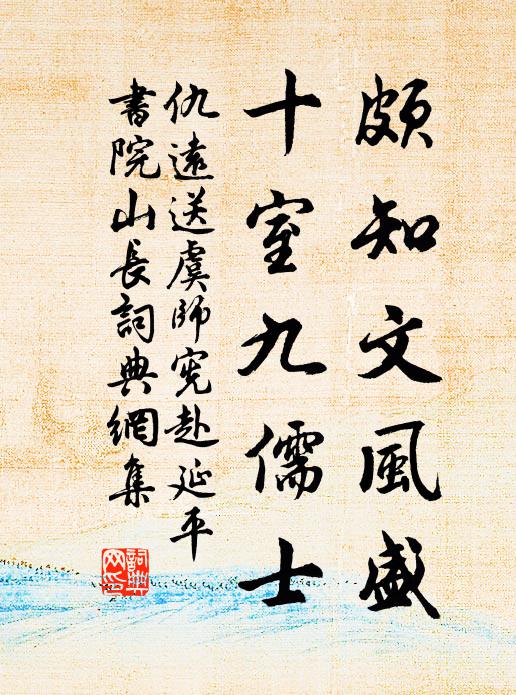 頗知文風盛
十室九儒士
仇遠送虞師憲赴延平
書院山長詞典網集
詞典
网